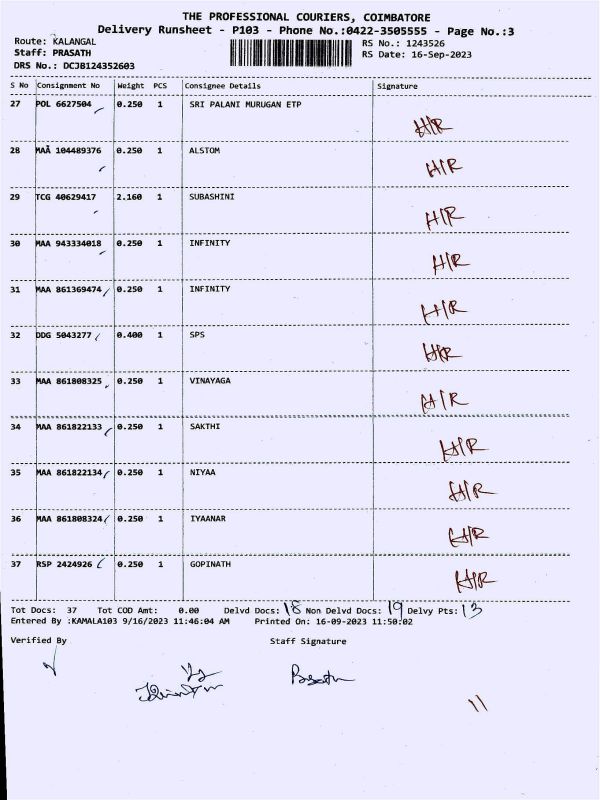 THE PROFESSIONAL COURIERS, COIMBATORE
Delivery Runsheet - P103 - Phone No.:0422-3505555 - Page No.:3
Route: KALANGAL RS No.: 1243526
Staff: PRASATH RS Date: 16-Sep-2023
DRS No.: DCJB124352603
S No Consignment No Weight PCS Consignee Details Signature
27 POL 6627504 0.250 1 SRI PALANI MURUGAN ETP H/R
28 MAA 104489376 0.250 1 ALSTOM H/R
29 TCG 40629417 2.160 1 SUBASHINI H/R
30 MAA 943334018 0.250 1 INFINITY H/R
31 MAA 861369474 0.250 1 INFINITY H/R
32 DDG 5043277 0.400 1 SPS H/R
33 MAA 861808325 0.250 1 VINAYAGA H/R
34 MAA 861822133 0.250 1 SAKTHI H/R
35 MAA 861822134 0.250 1 NIYAA H/R
36 MAA 861808324 0.250 1 IYAANAR H/R
37 RSP 2424926 0.250 1 GOPINATH H/R
Tot Docs: 37 Tot COD Amt: 0.00 Delvd Docs: 18 Non Delvd Docs: 19 Delvy Pts: 13
Entered By :KAMALA103 9/16/2023 11:46:04 AM Printed On: 16-09-2023 11:50:02
Verified By Staff Signature
11